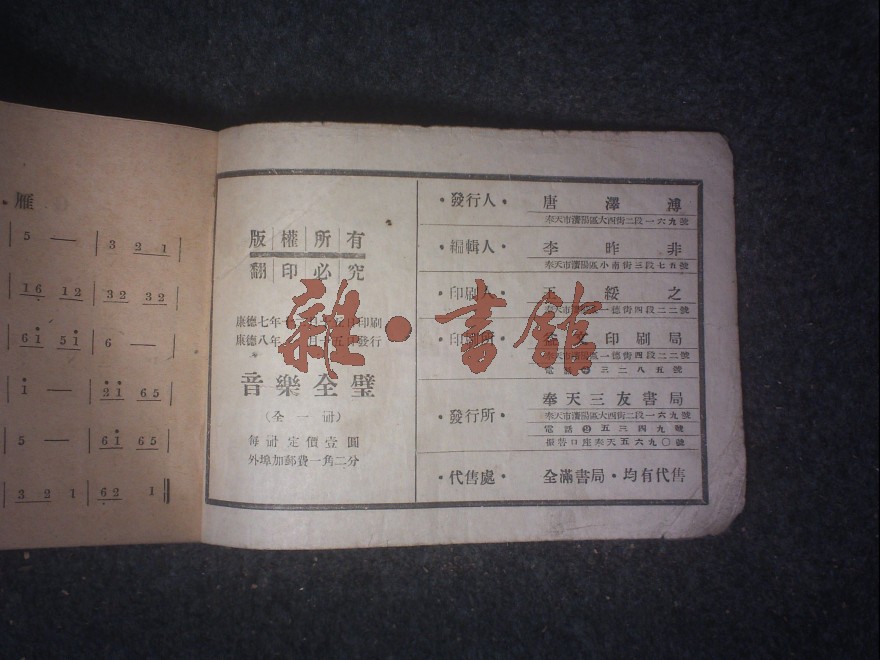 雁
5 — | 3 2 1
16 12 | 32 32
61 51 | 6 —
1 — | 21 65
6 — | 61 65
3 2 1 | 62 1
版權所有
翻印必究
康德七年十二月 日印刷
康德八年 月十五日發行
音樂全璧
(全一冊)
每冊定價壹圓
外埠加郵費一角二分
·發行人· 唐澤溥
奉天市瀋陽區大西街二段一六九號
·編輯人· 李昨非
奉天市瀋陽區小南街三段七五號
·印刷人· 王綏之
奉天市 區一德街四段二二號
·印刷所· 文印刷局
奉天市 區一德街四段二二號
電話 三二八五號
·發行所· 奉天三友書局
奉天市瀋陽區大西街二段一六九號
電話②五三四九號
振替口座奉天五六九〇號
·代售處· 全滿書局·均有代售
雜·書館